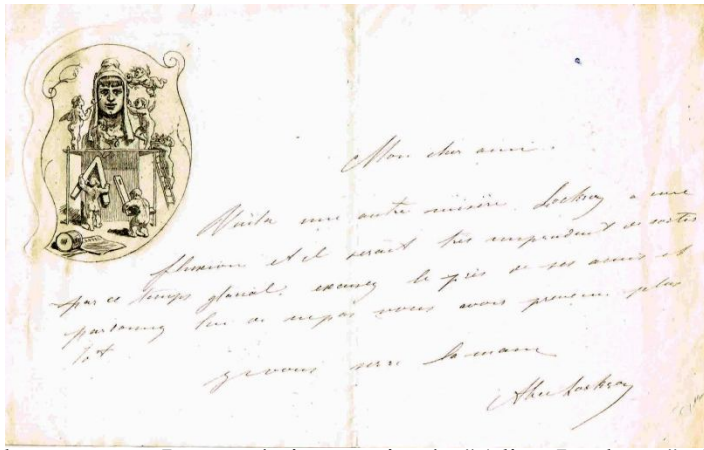 Mon cher ami.
Voila une autre misère Lockroy a une
fluxion et il serait très imprudent de sortir
par ce temps glacial. excusez le près de ses amis et
pardonnez lui de ne pas vous avoir prévenu plus
tot
je vous serre la main
Alice Lockroy